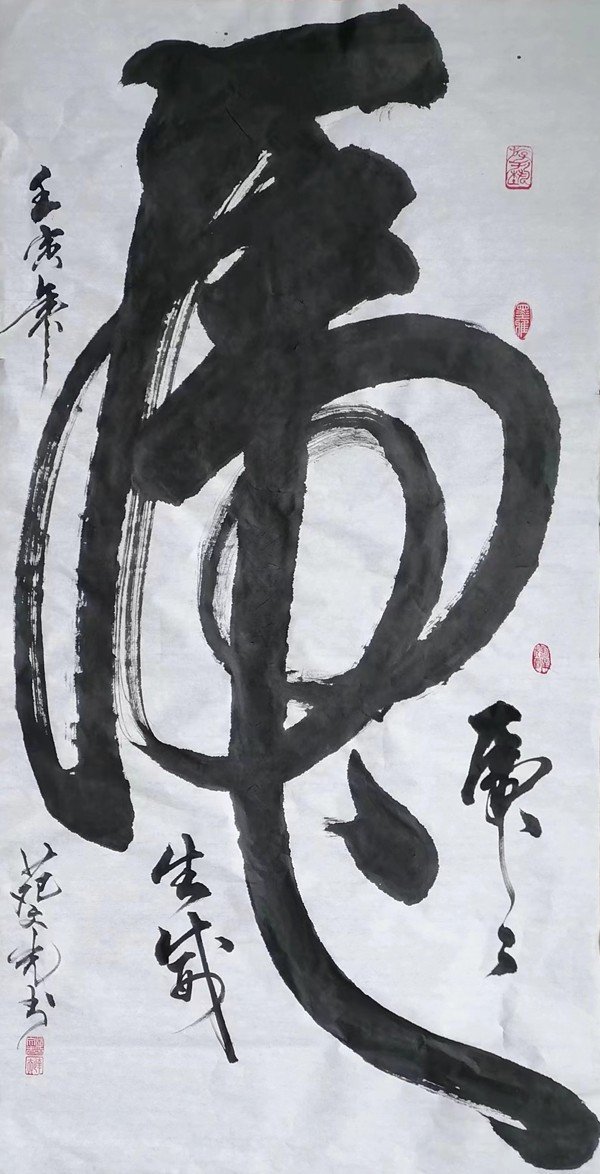 虎
虎〻
生威
壬寅年
范 光书